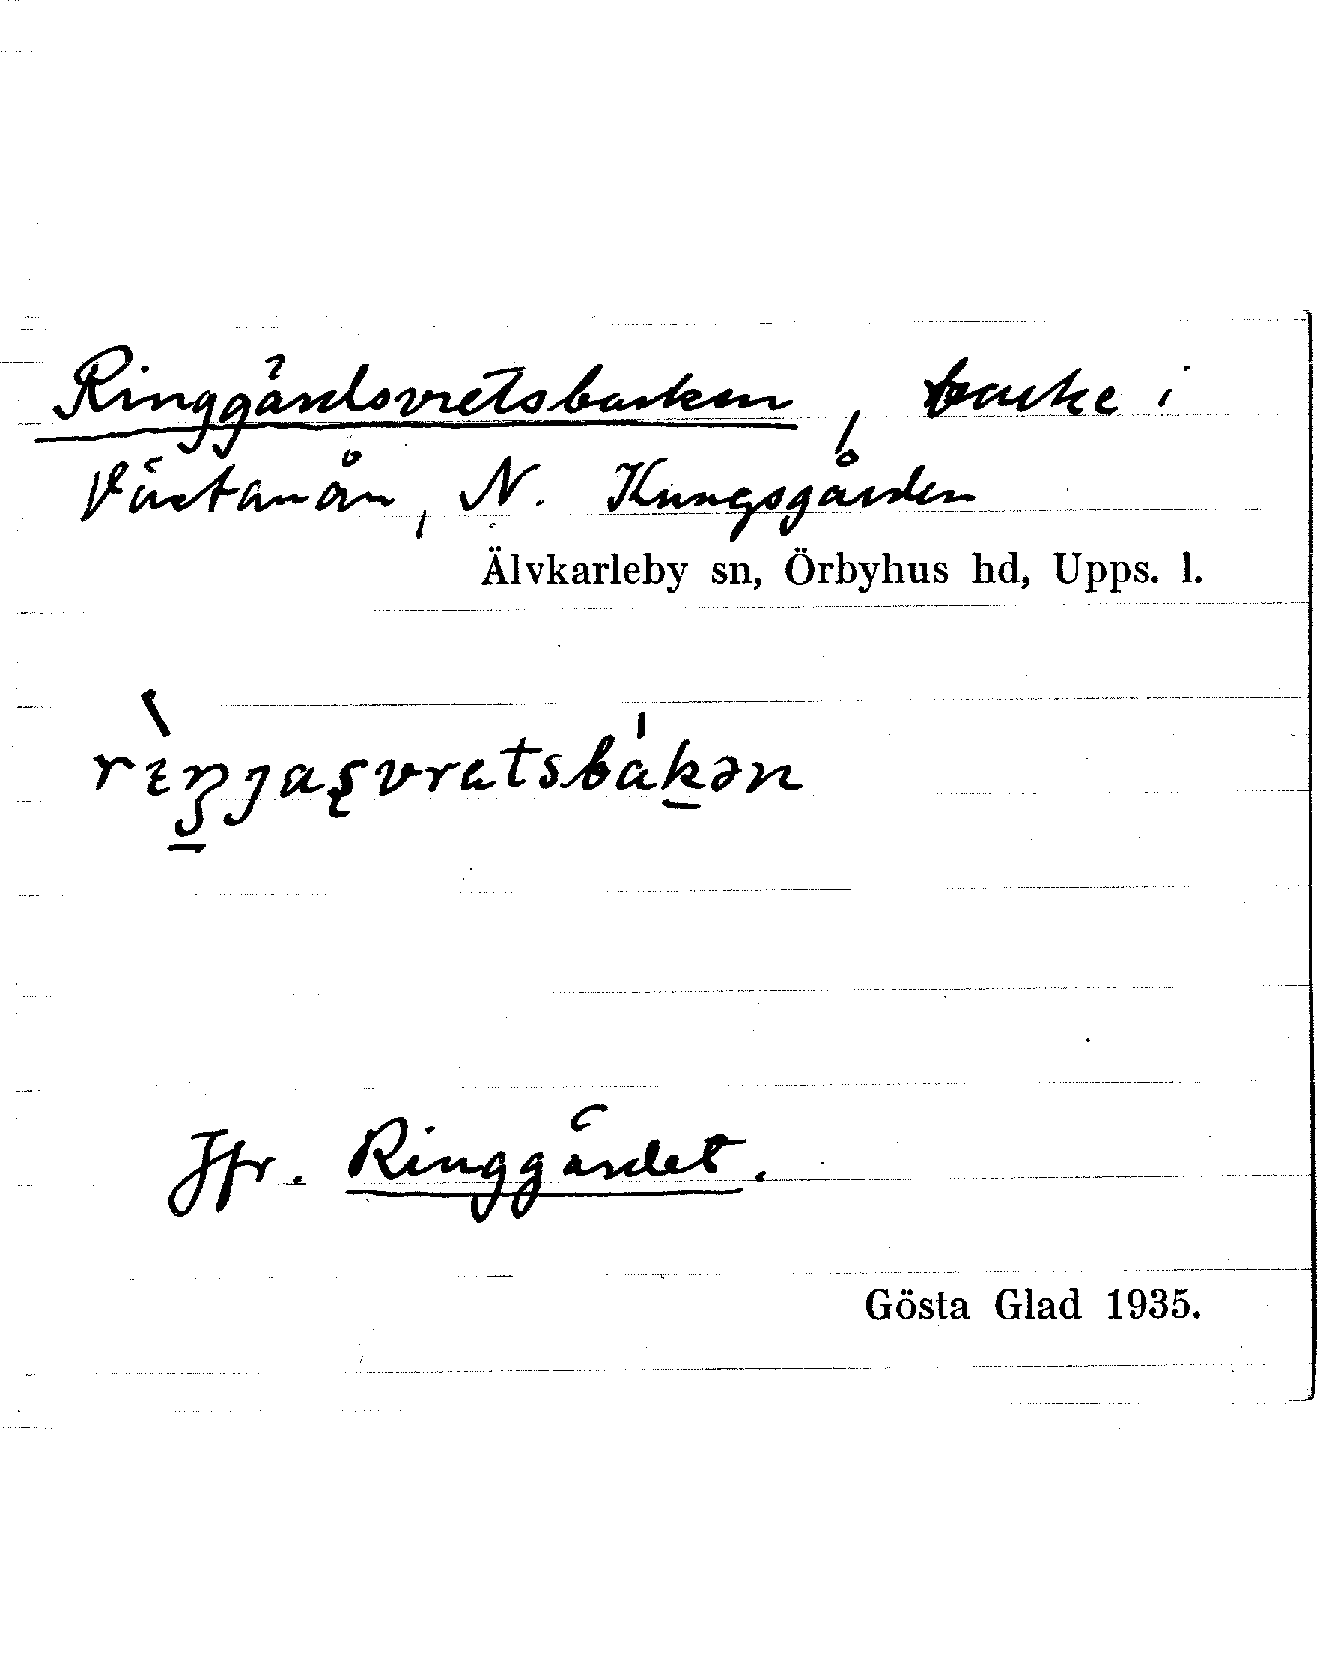 Ringgärdsvretsbacken, backe i
Västanån, N. Kungsgården
Älvkarleby sn, Örbyhus hd, Upps. l.
Jfr. Ringgärdet.
Gösta Glad 1935.